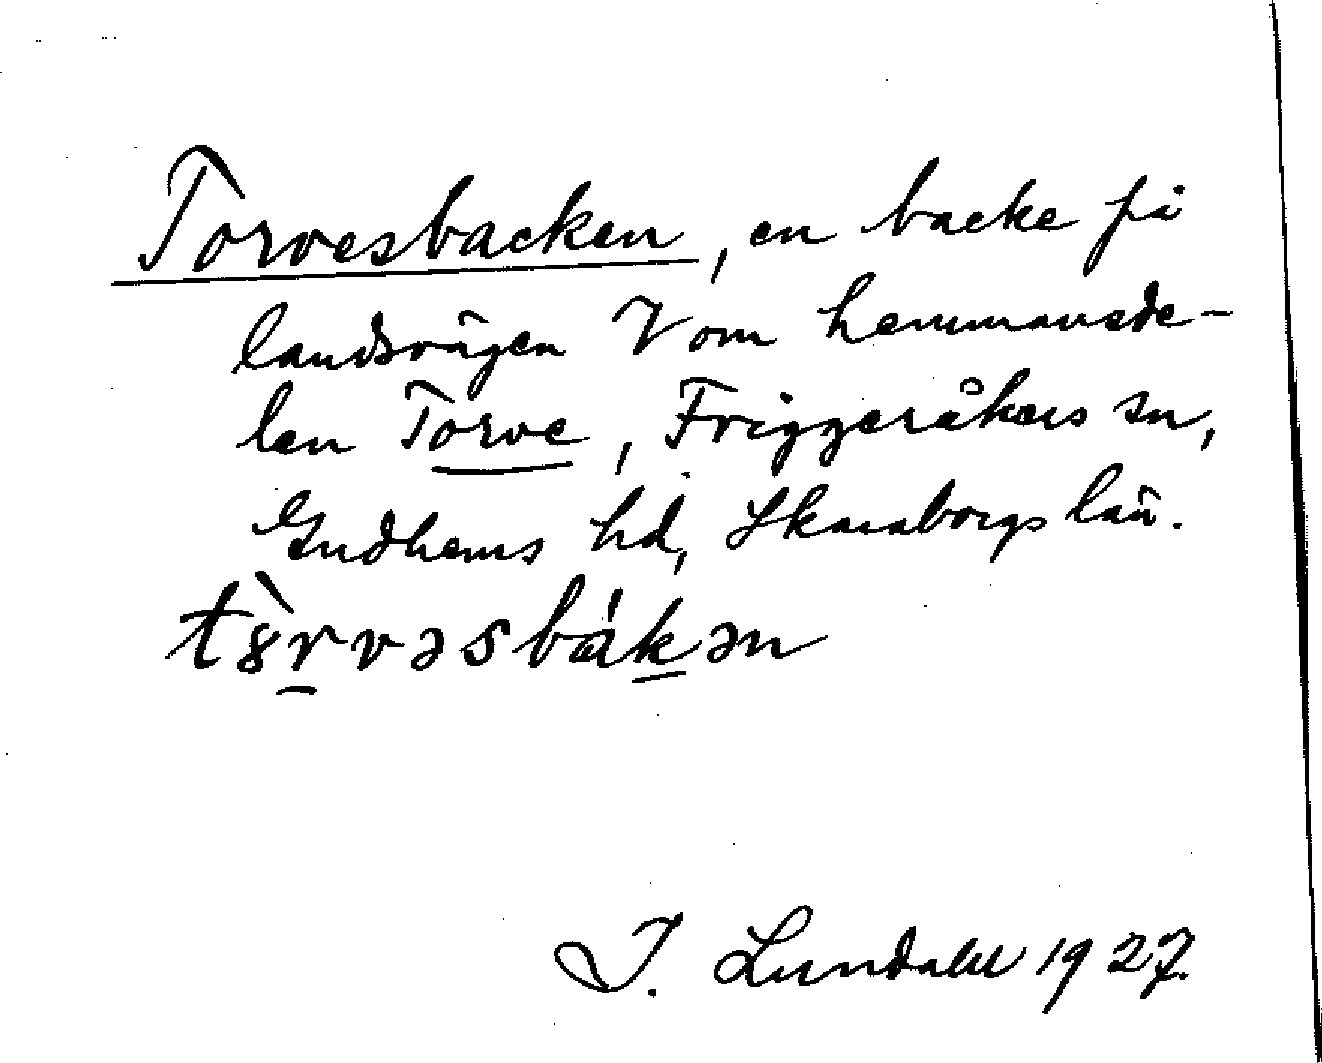 Torvesbacken, en backe på
landsvägen V om hemmansde-
len Torve, Friggeråkers sn,
Gudhems hd, Skaraborgs län.
tȣ̀rvəsbákən
I. Lundahl 1927.